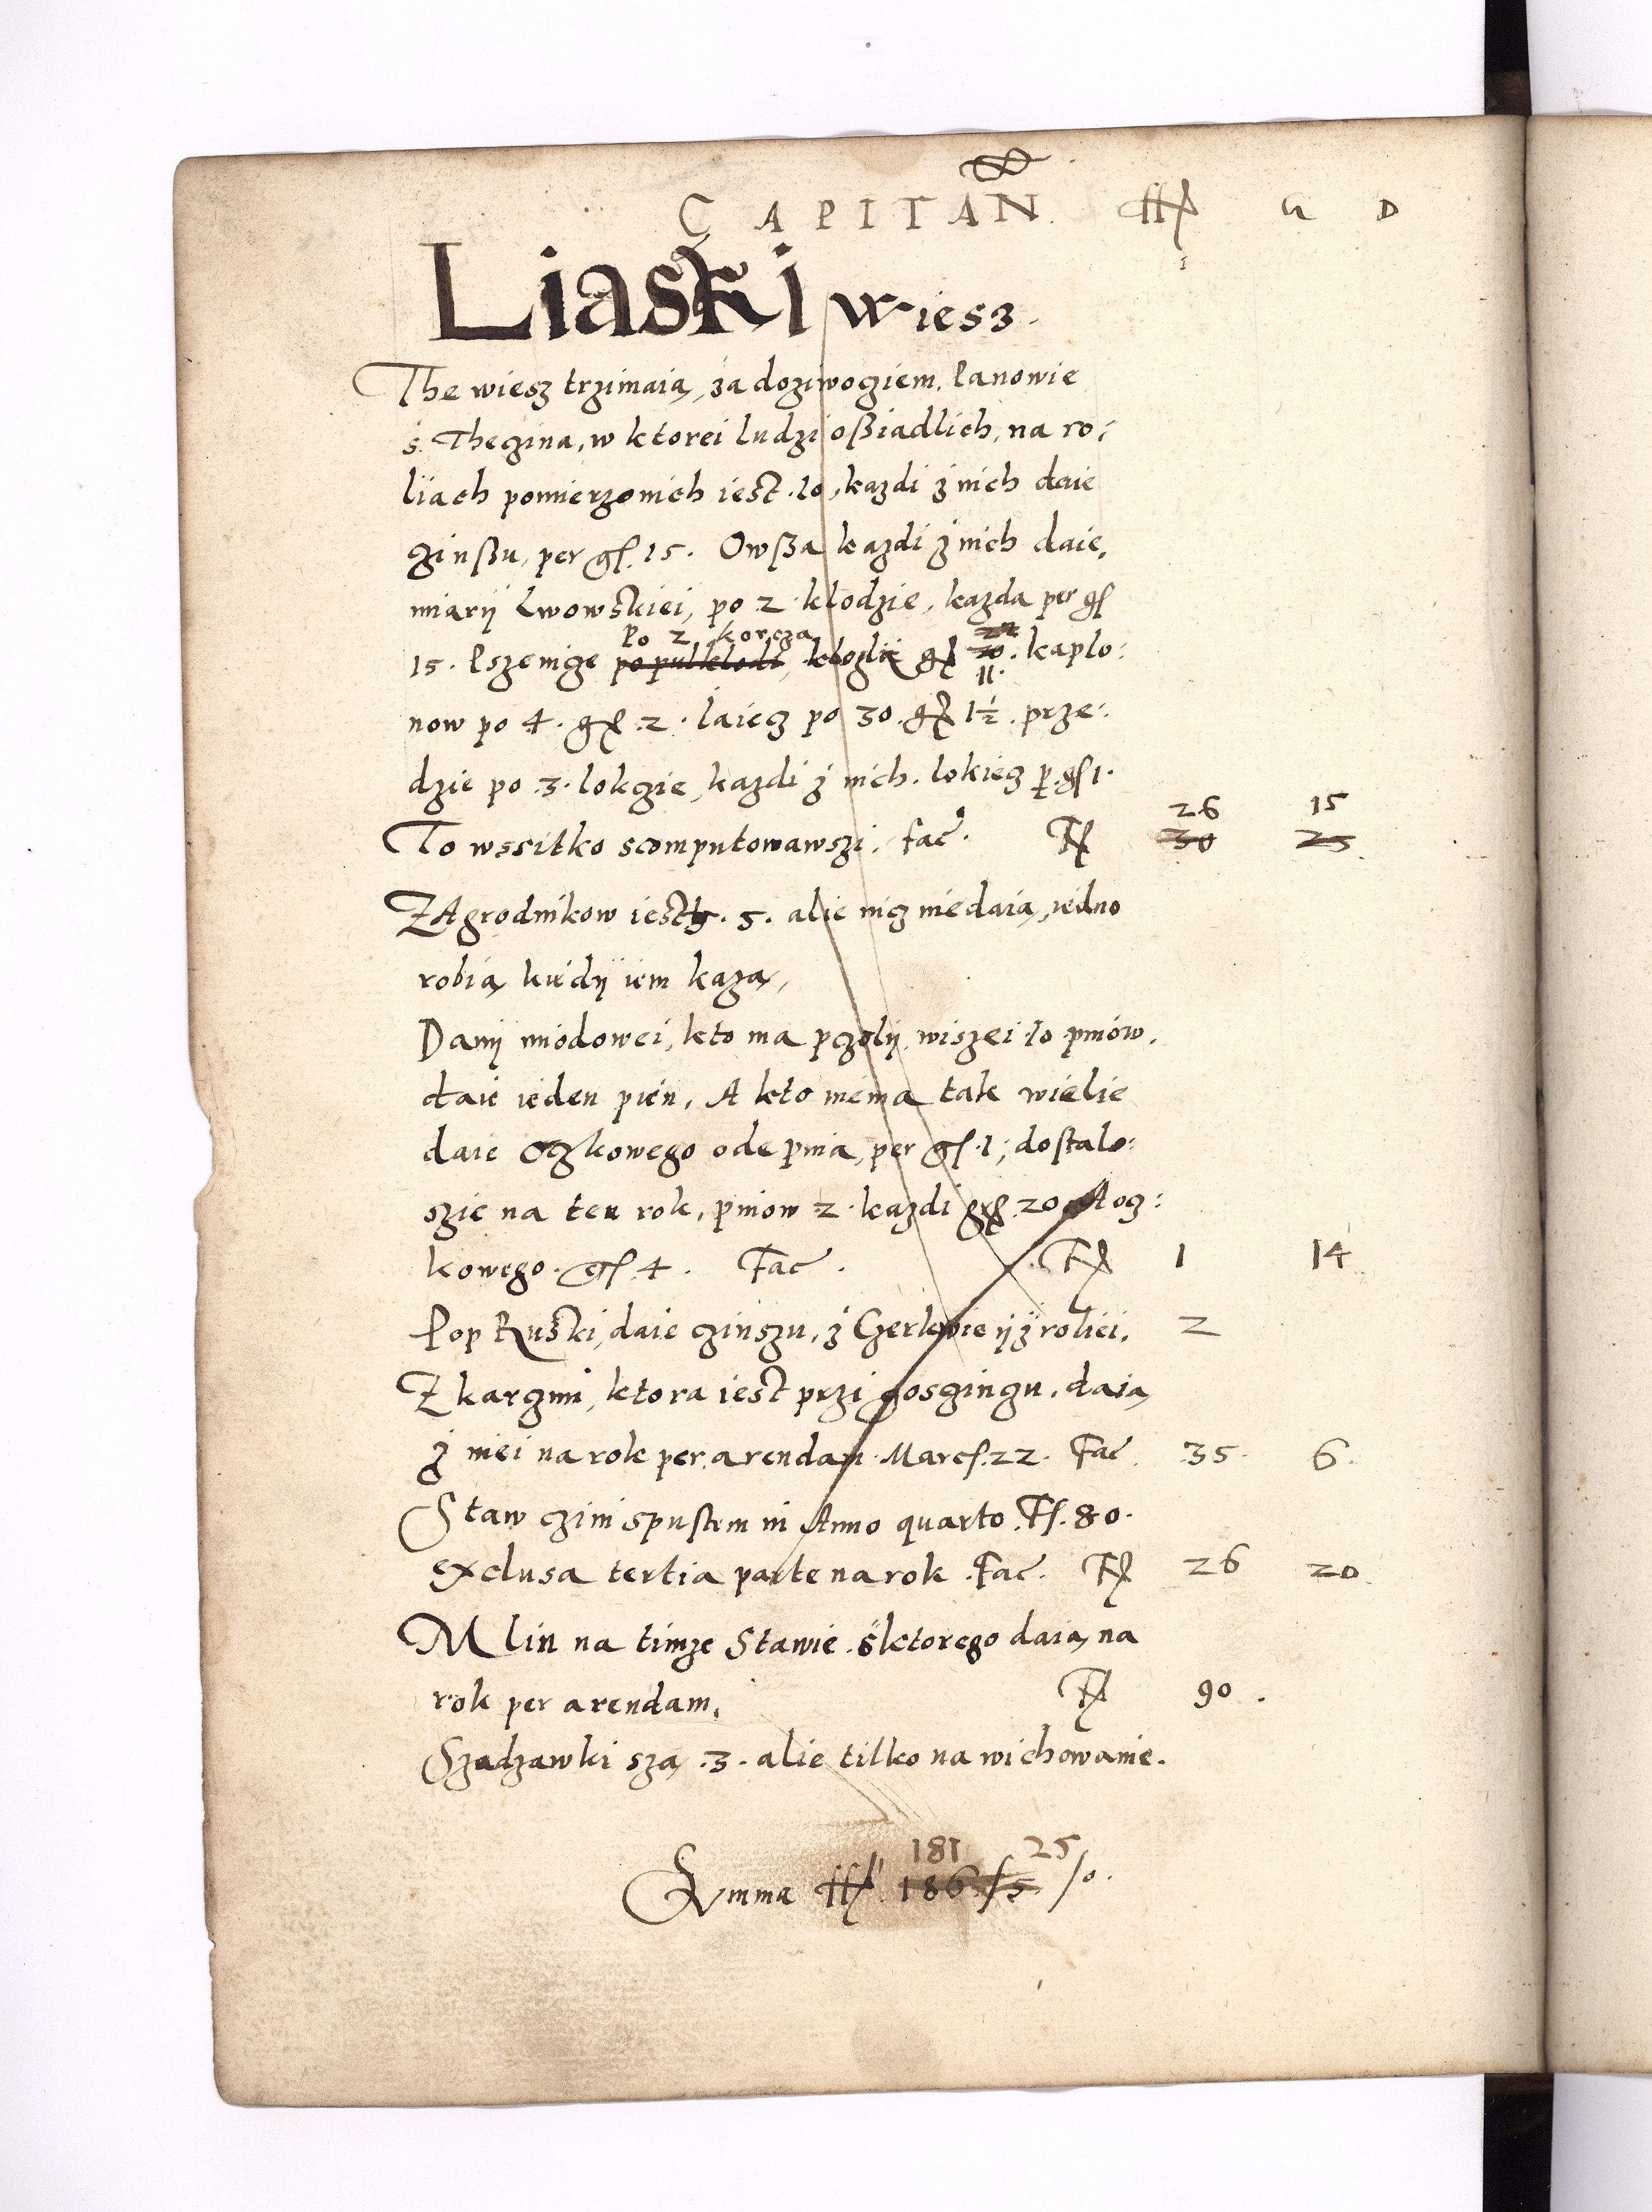 CAPITAN. ff G D
Liaski wiesz.
The wiesz trzimaią, za doziwocziem, Panowie
s. Theczina, w ktorei ludzi oßiadlich, na ro:
liiach pomierzonich iest .10. kazdi z nich daie
czinßu, per gſ. 15. Owßa kazdi z nich daie,
miarÿ Lwowskiei, po 2 klodzie, kazda per gſ
po 2 korcza
15. Pszenicze po pul klodi, gſ 20. kaplo:
11.
now po 4. gſ .2. Iaiecz po 30. gſ 1½. prze:
dzie po .3. lokczie, kazdi z nich. lokiecz p. gſ 1.
26 15
To wssitko scomputowawszi. fac. Fſ 30 25
ZAgrodnikow iesth. 5. alie nicz niedaią, iedno
robią, kiedÿ iem każą,
Danÿ miodowei, kto ma pczolÿ, wiszei 10 pniow,
daie ieden pien, A kto niema tak wielie
daie oczkowego ode pnia, per gſ. 1; dostalo:
szie na ten rok, pniow 2. kazdi grſ. 20 A ocz:
kowego. gſ. 4. Fac. Fſ 1 14
Pop Ruski, daie czinszu, z Czerkwie ÿ z roliei, 2
Z karczmi, ktora iest przi gosczinczu, daią,
z niei na rok per arendam. Marcſ. 22. Fac. 35. 6.
Staw czini spustem in Anno quarto. Fſ. 80.
exclusa tertia parte na rok. Fac. Fſ 26 20.
Mlin na timze Stawie. s ktorego daią, na
rok per arendam, Fſ 90.
Szadzawki szą .3. alie tilko na wichowanie.
181 25
Summa ff. 186 /5 /0.